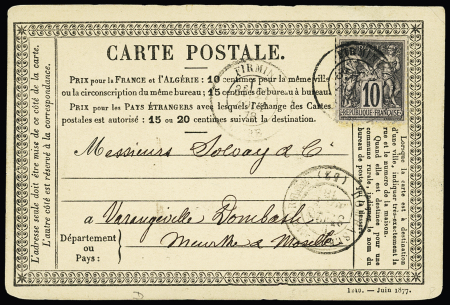 L'adresse seule doit être mise de ce côté de la carte.
L'autre côté est réservé à la correspondance.
CARTE POSTALE.
PRIX pour la FRANCE et l'ALGÉRIE: 10 centimes pour la même ville
ou la circonscription du même bureau; 15 centimes de bureau à bureau.
PRIX pour les PAYS ÉTRANGERS avec lesquels l'échange des Cartes
postales est autorisé: 15 ou 20 centimes suivant la destination.
FIRMINY
FIRMINY
10
REPUBLIQUE FRANÇAISE
Messieurs Solvay & Cie
à Varangeville Dombasle
Meurthe & Moselle
Département
ou
Pays:
Lorsque la carte est à destination
d'une ville, indiquer très-exactement la
rue et le numéro de la maison.
Quand elle est destinée pour une
commune rurale, indiquer le nom du
bureau de poste qui la dessert.
1910. — Juin 1877.